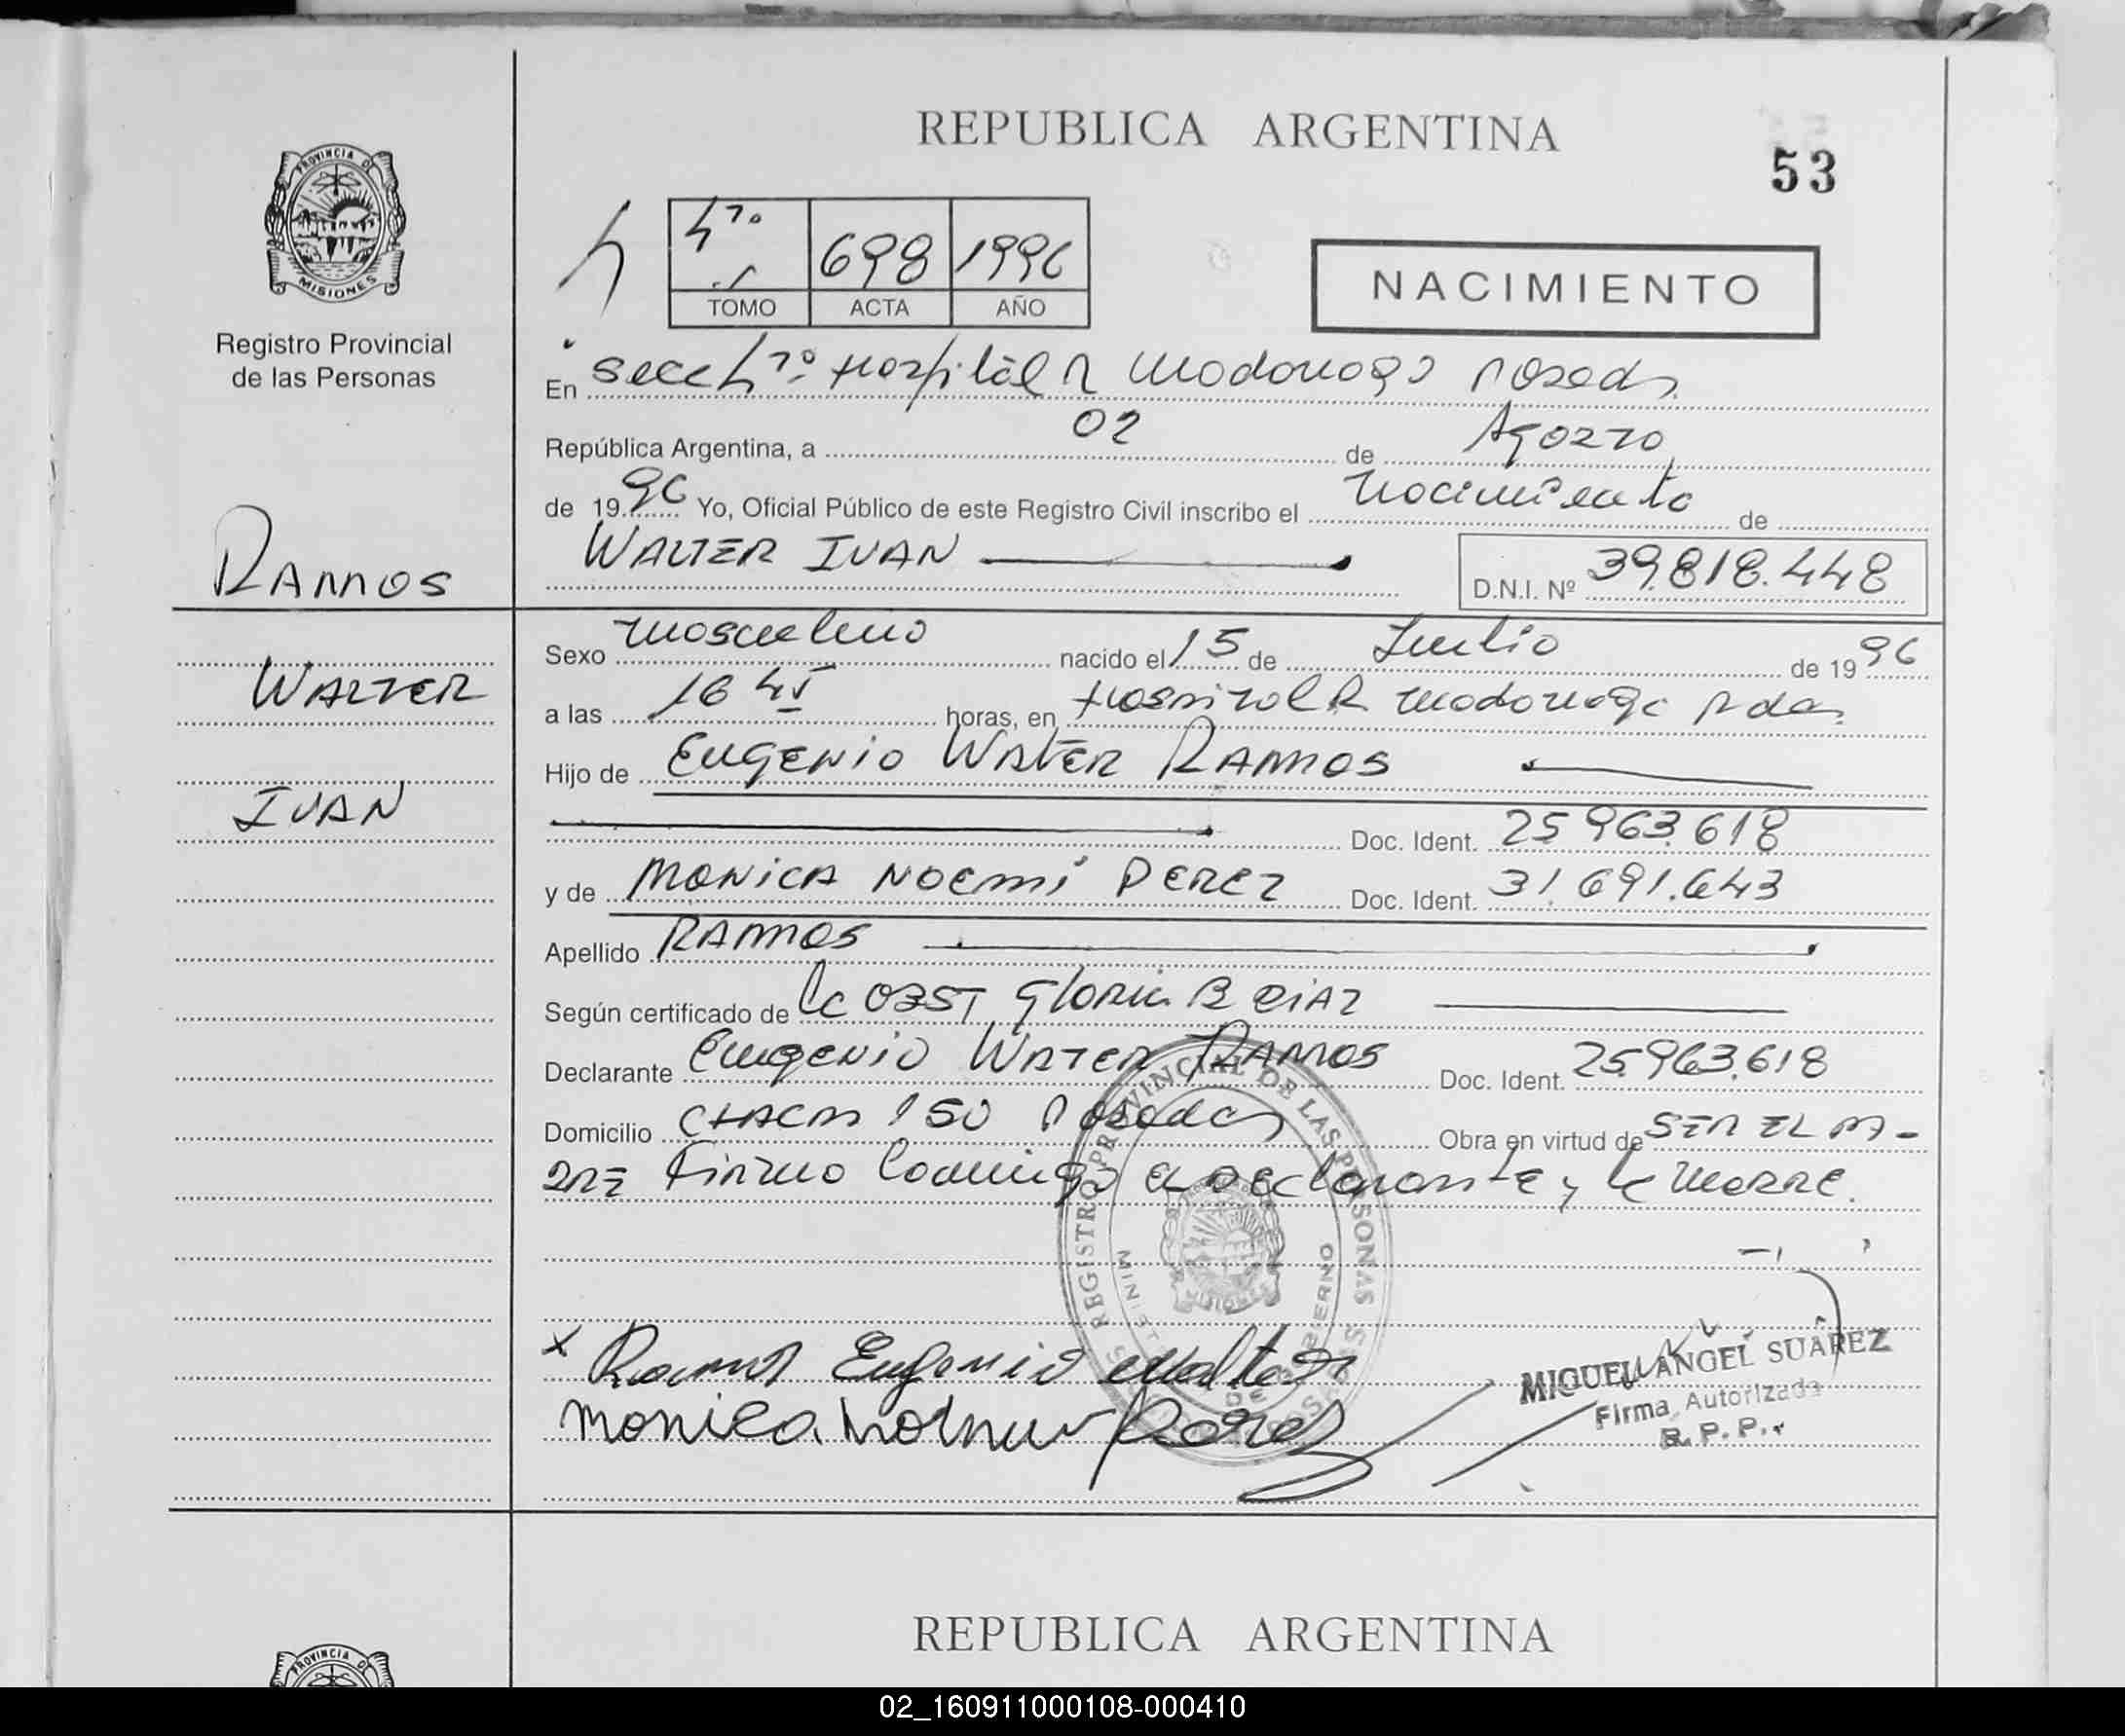 REPUBLICA ARGENTINA
53
PROVINCIA DE
MISIONES
Registro Provincial
de las Personas
4 4to 698 1996
TOMO ACTA AÑO
NACIMIENTO
En Secc 4to. Hospital R Madariaga Posadas
República Argentina, a 02 de Agosto
de 1996 Yo, Oficial Público de este Registro Civil inscribo el nacimiento de
WALTER IVAN D.N.I. Nº 39.818.448
RAMOS
WALTER
IVAN
Sexo masculino nacido el 15 de Julio de 1996
a las 16 45 horas, en Hospital R Madariaga Pdas.
Hijo de EUGENIO WALTER RAMOS
Doc. Ident. 25.963.618
y de MONICA NOEMI PEREZ Doc. Ident. 31.691.643
Apellido RAMOS
Según certificado de la OBST GLORIA B DIAZ
Declarante EUGENIO WALTER RAMOS Doc. Ident. 25.963.618
Domicilio CHACRA 150 Posadas Obra en virtud de SER EL PA-
DRE Firma conmigo el declarante y la madre.
REGISTRO PROVINCIAL DE LAS PERSONAS
DE GOBIERNO
MISIONES
x Ramos Eugenio Walter
Monica Perez
MIGUEL ANGEL SUAREZ
Firma Autorizada
R. P. P.
REPUBLICA ARGENTINA
PROVINCIA DE
02_160911000108-000410